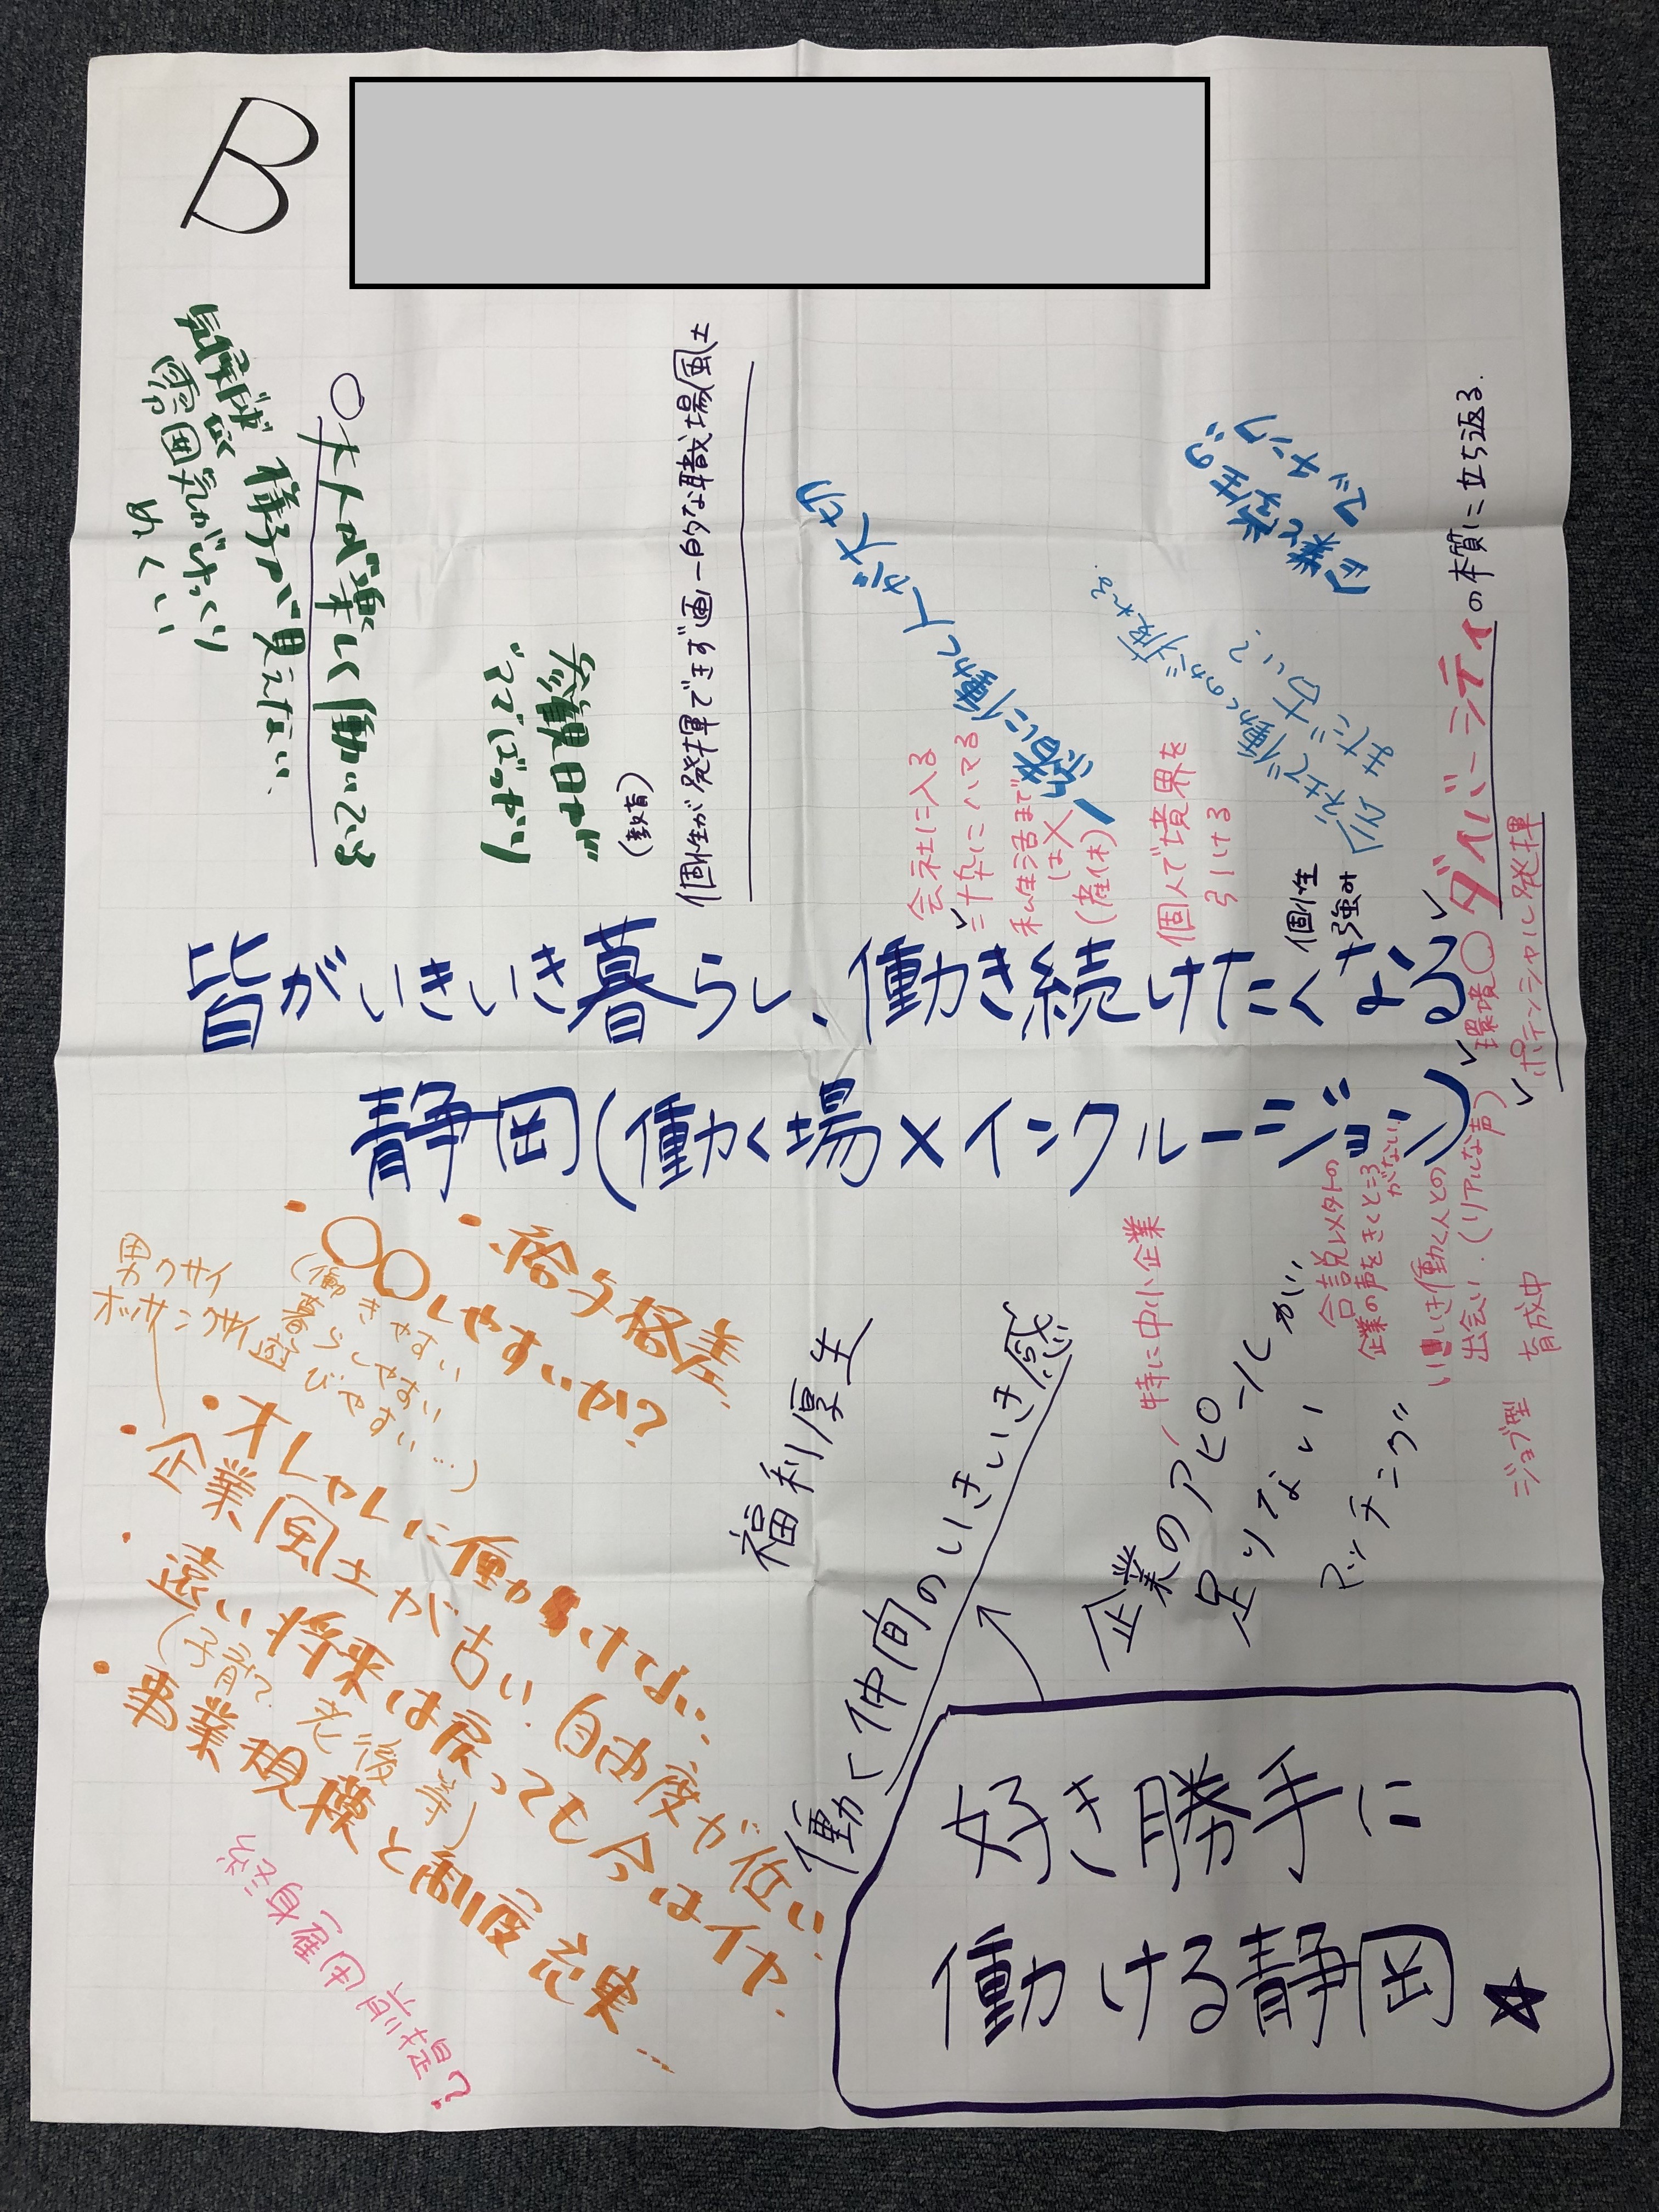 B
大人が楽しく働いている
様子が見えない、
雰囲気がにゅっくり
めてい
学習や日報が
(教育)
個性が発揮できず画一的な職場風土
一緒に働く人が大切
企業と学生の
マッチング
会社で働くのが
まだ古い?
会社に入る
=枠にハマる
私生活まで
は×
(産休)
個人で境界を
引ける
個性
強み
ダイバーシティの本質に立ち返る.
環境○
ポテンシャル発揮
皆がいきいき暮らし、働き続けたくなる
静岡(働く場×インクルージョン)
・給与格差、
・○○しやすいか?
(働きやすい
暮らしやすい
遊びやすい…)
男クサイ
オッサンクサイ
・オシャレに働けない、
・企業風土が古い. 自由度が低い.
・遠い将来は戻っても今はイヤ.
(子育て、老後等)
・事業規模と制度充実…
終身雇用
前提?
福利厚生
働く仲間のいきいき感
特に中小企業
企業のアピールが…
足りない!
マッチング
合説以外の
企業の声をきくところ
がない、
いきいき働く人との
出会い.(リアルな声)
育成中
ジョブ型
好き勝手に
働ける静岡